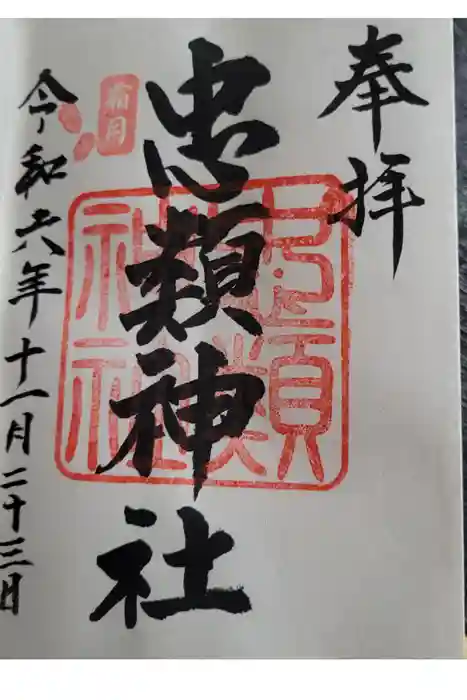 奉拝
忠類神社
忠類
神社
霜月
令和六年十一月二十三日